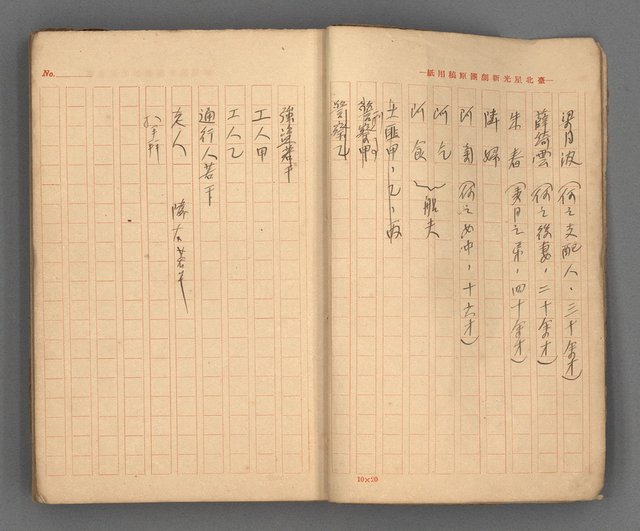 —臺北星光新劇團原稿用紙—
梁月波(何之支配人、三十余才)
薛倚雲(何之後妻、二十余才)
朱春(素月之弟、四十余才)
隣婦
阿蘭(何之女中、十六才)
阿乞
阿食
船夫
土匪甲、乙、丙
警察甲
警察乙
10×20
No.
強盜若干
工人甲
工人乙
通行人若干
隣右若干